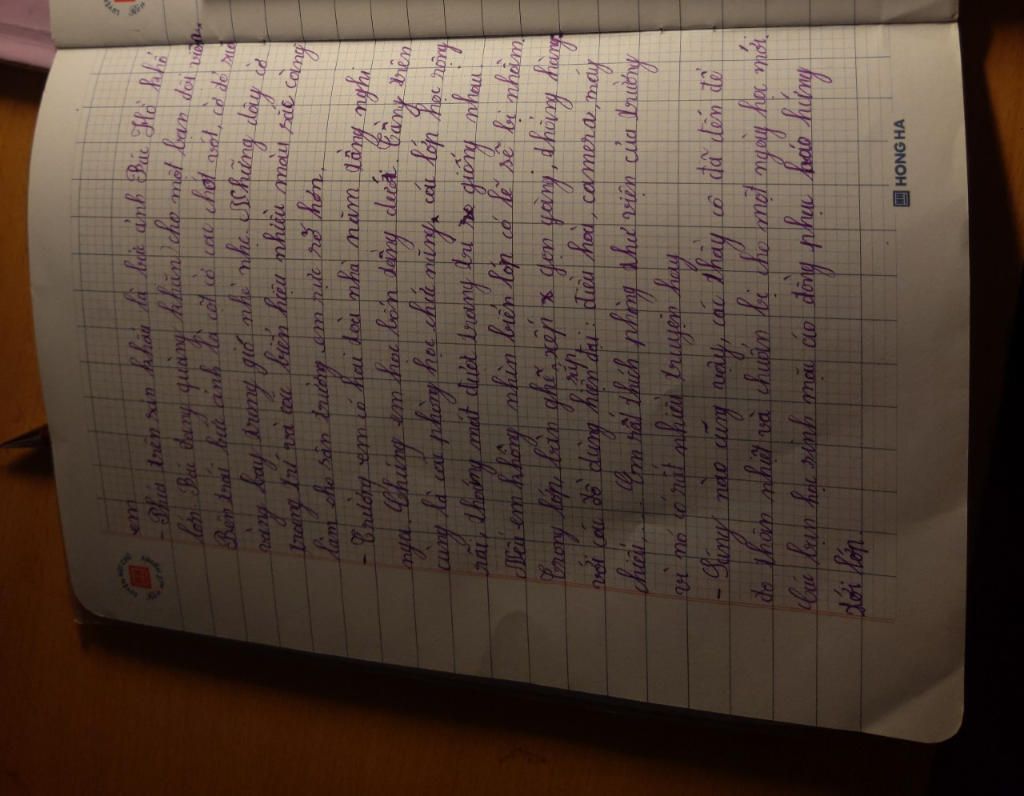 em
- Phía trên sân khấu là bức ảnh Bác Hồ khổ
lớn. Bác đang quàng khăn cho một bạn đội viên.
Bên trái bức ảnh là cột cờ cao chót vót, cờ đỏ sao
vàng bay trong gió nhè nhẹ. Những dây cờ
trang trí và các biển hiệu nhiều màu sắc càng
làm cho sân trường em rực rỡ hơn.
- Trường em có hai tòa nhà nằm vuông nghi
ngút. Chúng em học bốn tầng dưới. Tầng trên
cùng là các phòng học chức năng, các lớp học rộng
rãi, thoáng mát được trang trí giống nhau.
Nếu em không nhìn biển lớp có lẽ sẽ bị nhầm.
Trong lớp bàn ghế xếp gọn gàng, thẳng hàng
sịn
với các đồ dùng hiện đại: điều hòa, camera, máy
chiếu,... Em rất thích phòng thư viện của trường
vì nó có rất nhiều truyện hay
- Sáng nào cũng vậy, các thầy cô đã đến để
đo thân nhiệt và chuẩn bị cho một ngày học mới.
Các bạn học sinh mặc áo đồng phục hào hứng
tới lớp.
HONG HA